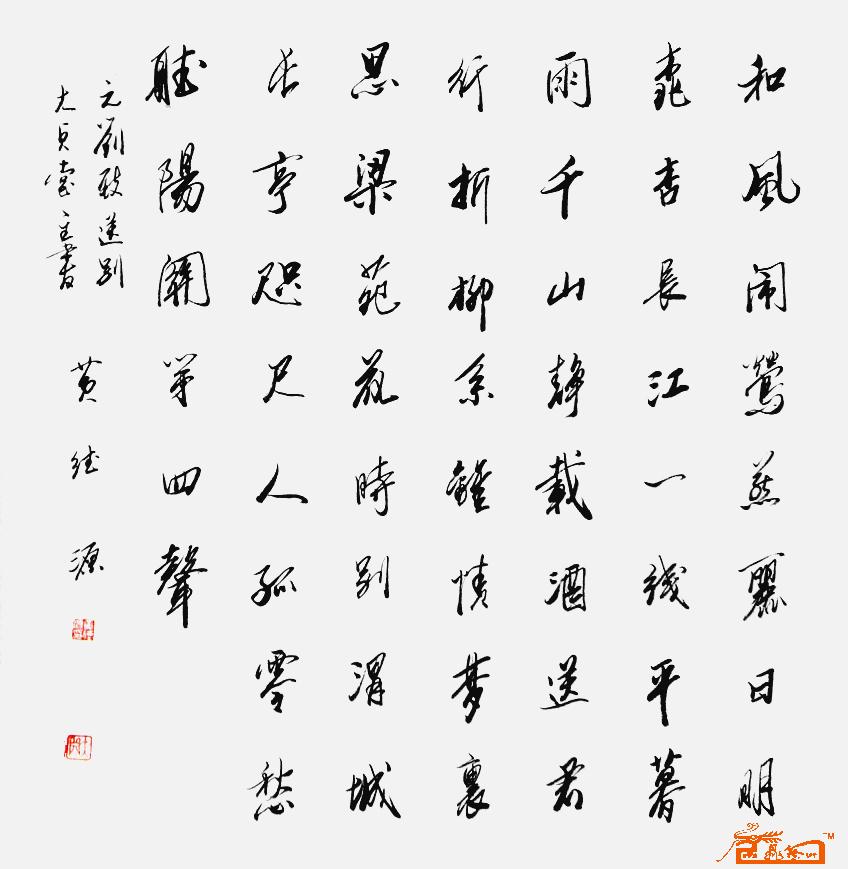 和風闹鶯燕麗日明
桃杏長江一线平暮
雨千山静載酒送君
行折柳系離情夢裏
思梁苑花時别渭城
长亭咫尺人孤零愁
聽陽關第四聲
元劉致送别
大貞堂主書 黄 源